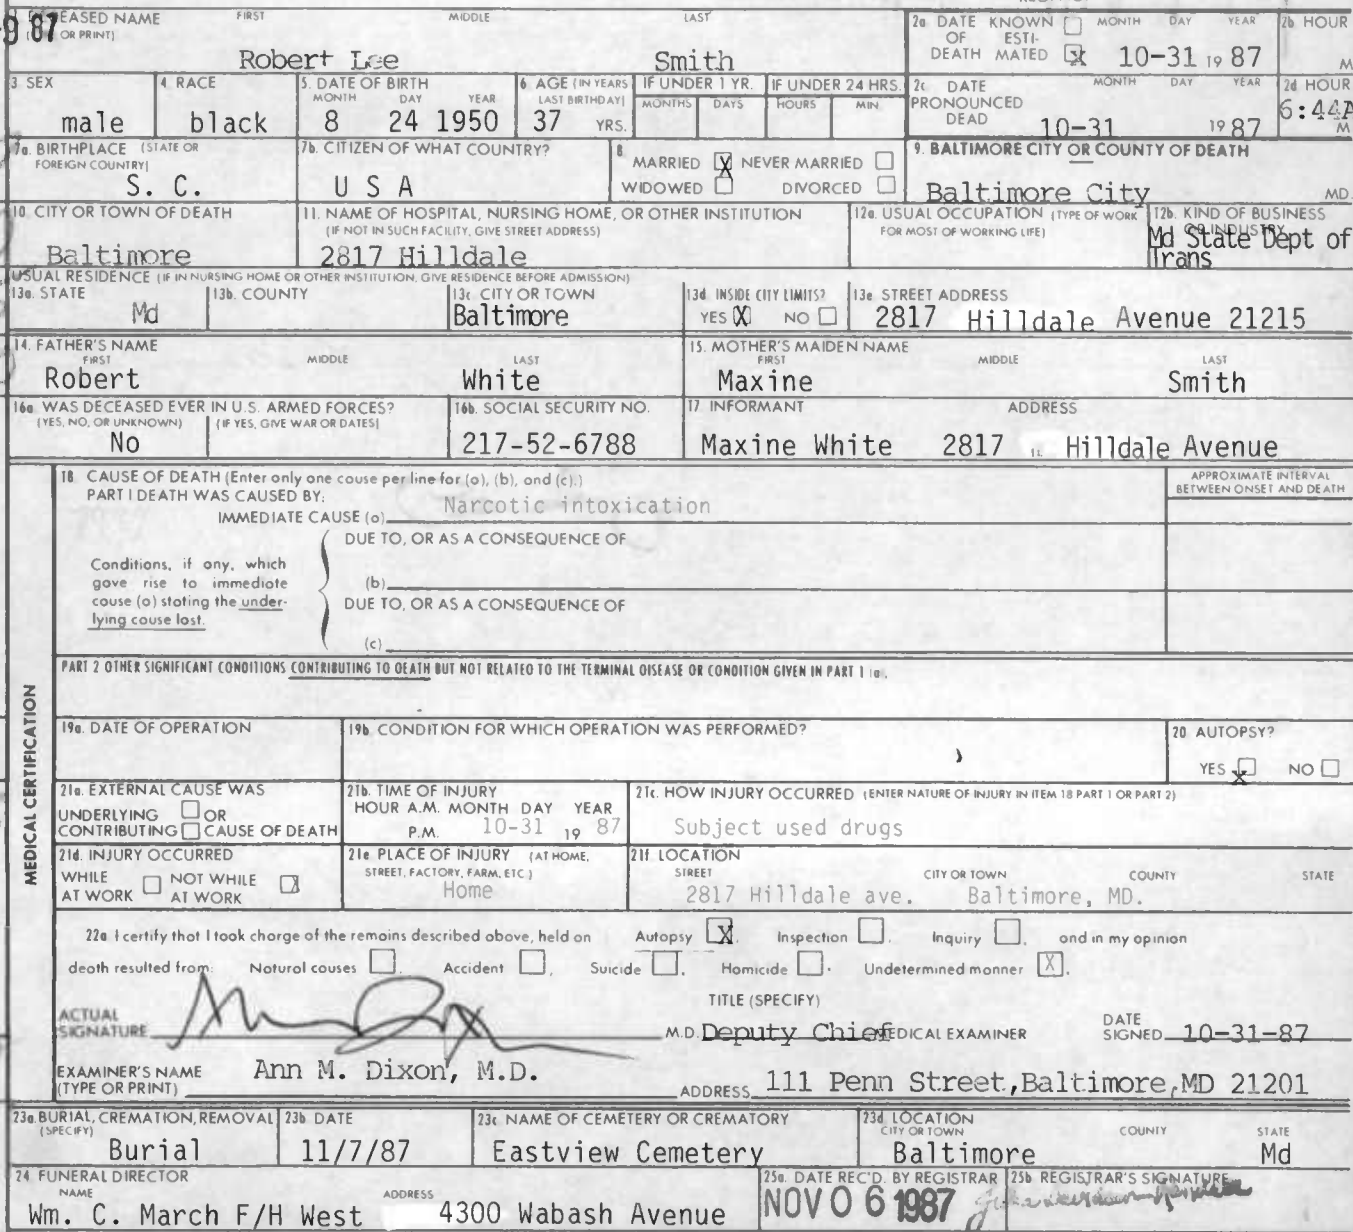 DECEASED NAME FIRST MIDDLE LAST
(OR PRINT)
9 87
Robert Lee Smith
2a DATE KNOWN MONTH DAY YEAR
OF ESTI-
DEATH MATED X 10-31 19 87
2b HOUR
M
3 SEX
male
4 RACE
black
5. DATE OF BIRTH
MONTH DAY YEAR
8 24 1950
6 AGE (IN YEARS
LAST BIRTHDAY)
37 YRS.
IF UNDER 1 YR.
MONTHS DAYS
IF UNDER 24 HRS.
HOURS MIN
2c DATE MONTH DAY YEAR
PRONOUNCED
DEAD 10-31 19 87
2d HOUR
6:44A
M
7a. BIRTHPLACE (STATE OR
FOREIGN COUNTRY)
S. C.
7b. CITIZEN OF WHAT COUNTRY?
U S A
8
MARRIED X NEVER MARRIED
WIDOWED DIVORCED
9. BALTIMORE CITY OR COUNTY OF DEATH
Baltimore City MD.
10 CITY OR TOWN OF DEATH
Baltimore
11. NAME OF HOSPITAL, NURSING HOME, OR OTHER INSTITUTION
(IF NOT IN SUCH FACILITY, GIVE STREET ADDRESS)
2817 Hilldale
12a. USUAL OCCUPATION (TYPE OF WORK
FOR MOST OF WORKING LIFE)
12b. KIND OF BUSINESS
OR INDUSTRY
Md State Dept of
Trans
USUAL RESIDENCE (IF IN NURSING HOME OR OTHER INSTITUTION, GIVE RESIDENCE BEFORE ADMISSION)
13a. STATE
Md
13b. COUNTY
13c CITY OR TOWN
Baltimore
13d. INSIDE CITY LIMITS?
YES X NO
13e STREET ADDRESS
2817 Hilldale Avenue 21215
14. FATHER'S NAME
FIRST MIDDLE LAST
Robert White
15. MOTHER'S MAIDEN NAME
FIRST MIDDLE LAST
Maxine Smith
16a WAS DECEASED EVER IN U.S. ARMED FORCES?
(YES, NO, OR UNKNOWN) (IF YES, GIVE WAR OR DATES)
No
16b. SOCIAL SECURITY NO.
217-52-6788
17 INFORMANT ADDRESS
Maxine White 2817 Hilldale Avenue
MEDICAL CERTIFICATION
18 CAUSE OF DEATH (Enter only one cause per line for (a), (b), and (c).)
PART I DEATH WAS CAUSED BY:
IMMEDIATE CAUSE (a) Narcotic intoxication
APPROXIMATE INTERVAL
BETWEEN ONSET AND DEATH
DUE TO, OR AS A CONSEQUENCE OF
Conditions, if any, which
gave rise to immediate
cause (a) stating the under-
lying cause last.
(b)
DUE TO, OR AS A CONSEQUENCE OF
(c)
PART 2 OTHER SIGNIFICANT CONDITIONS CONTRIBUTING TO DEATH BUT NOT RELATED TO THE TERMINAL DISEASE OR CONDITION GIVEN IN PART 1 (a).
19a. DATE OF OPERATION
19b. CONDITION FOR WHICH OPERATION WAS PERFORMED?
20 AUTOPSY?
YES X NO
21a. EXTERNAL CAUSE WAS
UNDERLYING OR
CONTRIBUTING CAUSE OF DEATH
21b. TIME OF INJURY
HOUR A.M. MONTH DAY YEAR
P.M. 10-31 19 87
21c. HOW INJURY OCCURRED (ENTER NATURE OF INJURY IN ITEM 18 PART 1 OR PART 2)
Subject used drugs
21d. INJURY OCCURRED
WHILE NOT WHILE X
AT WORK AT WORK
21e PLACE OF INJURY (AT HOME,
STREET, FACTORY, FARM, ETC.)
Home
21f LOCATION
STREET CITY OR TOWN COUNTY STATE
2817 Hilldale ave. Baltimore, MD.
22a I certify that I took charge of the remains described above, held on Autopsy X. Inspection . Inquiry . and in my opinion
death resulted from: Natural causes . Accident . Suicide . Homicide . Undetermined manner X.
ACTUAL
SIGNATURE
TITLE (SPECIFY)
M.D. Deputy Chief MEDICAL EXAMINER
DATE
SIGNED 10-31-87
EXAMINER'S NAME
(TYPE OR PRINT) Ann M. Dixon, M.D.
ADDRESS 111 Penn Street, Baltimore, MD 21201
23a. BURIAL, CREMATION, REMOVAL
(SPECIFY)
Burial
23b DATE
11/7/87
23c NAME OF CEMETERY OR CREMATORY
Eastview Cemetery
23d LOCATION
CITY OR TOWN COUNTY STATE
Baltimore Md
24 FUNERAL DIRECTOR
NAME ADDRESS
Wm. C. March F/H West 4300 Wabash Avenue
25a. DATE REC'D. BY REGISTRAR
NOV 06 1987
25b REGISTRAR'S SIGNATURE